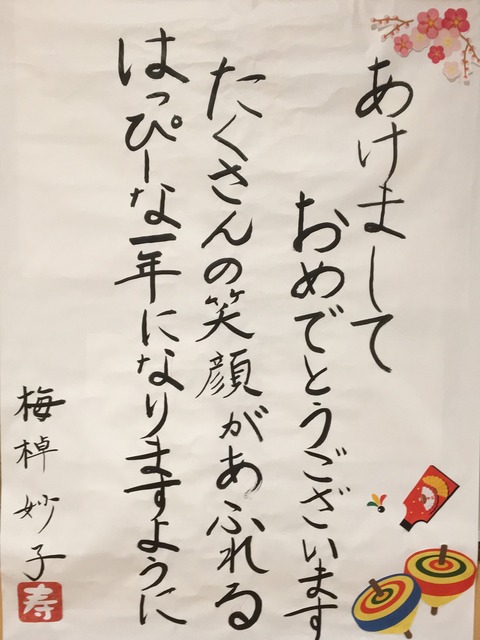 あけまして
おめでとうございます
たくさんの笑顔があふれる
はっぴーな一年になりますように
梅棹 妙子
寿